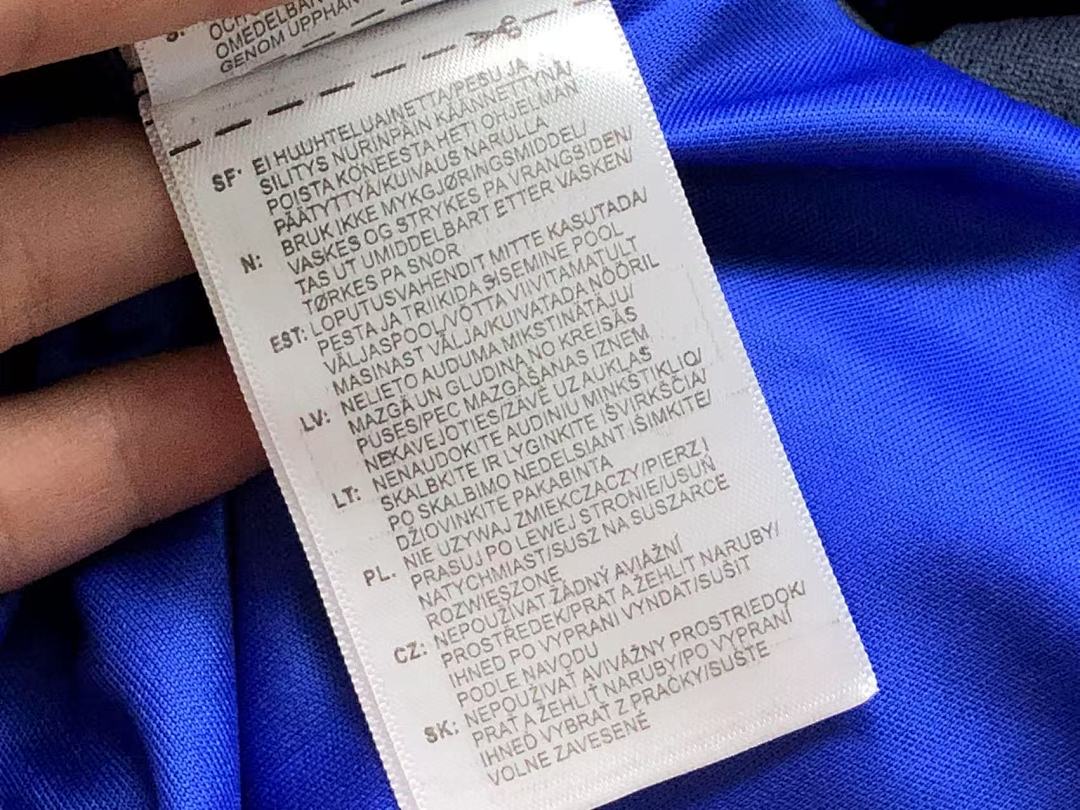 OCH
OMEDELBAR
GENOM UPPHÄN
SF: EI HUUHTELUAINETTA/PESU JA
SILITYS NURINPÄIN KÄÄNNETTYNÄ/
POISTA KONEESTA HETI OHJELMAN
PÄÄTYTTYÄ/KUIVAUS NARULLA
N: BRUK IKKE MYKGJØRINGSMIDDEL/
VASKES OG STRYKES PA VRANGSIDEN/
TAS UT UMIDDELBART ETTER VASKEN/
TØRKES PA SNOR
EST: LOPUTUSVAHENDIT MITTE KASUTADA/
PESTA JA TRIIKIDA SISEMINE POOL
VÄLJASPOOL/VÕTTA VIIVITAMATULT
MASINAST VÄLJA/KUIVATADA NÖÖRIL
LV: NELIETO AUDUMA MIKSTINĀTĀJU/
MAZGĀ UN GLUDINA NO KREISĀS
PUSES/PEC MAZGĀŠANAS IZŅEM
NEKAVEJOTIES/ZĀVĒ UZ AUKLAS
LT: NENAUDOKITE AUDINIU MINKSTIKLIO/
SKALBKITE IR LYGINKITE IŠVIRKŠČIA/
PO SKALBIMO NEDELSIANT IŠIMKITE/
DŽIOVINKITE PAKABINTA
PL: NIE UZYWAJ ZMIEKCZACZY/PIERZ I
PRASUJ PO LEWEJ STRONIE/USUŃ
NATYCHMIAST/SUSZ NA SUSZARCE
ROZWIESZONE
CZ: NEPOUŽÍVAT ŽÁDNÝ AVIÁŽNÍ
PROSTŘEDEK/PRAT A ŽEHLIT NARUBY/
IHNED PO VYPRANÍ VYNDAT/SUŠIT
PODLE NAVODU
SK: NEPOUŽIVAŤ AVIVÁŽNY PROSTRIEDOK/
PRAŤ A ŽEHLIŤ NARUBY/PO VYPRANÍ
IHNEĎ VYBRAŤ Z PRAČKY/SUŠTE
VOLNE ZAVESENÉ